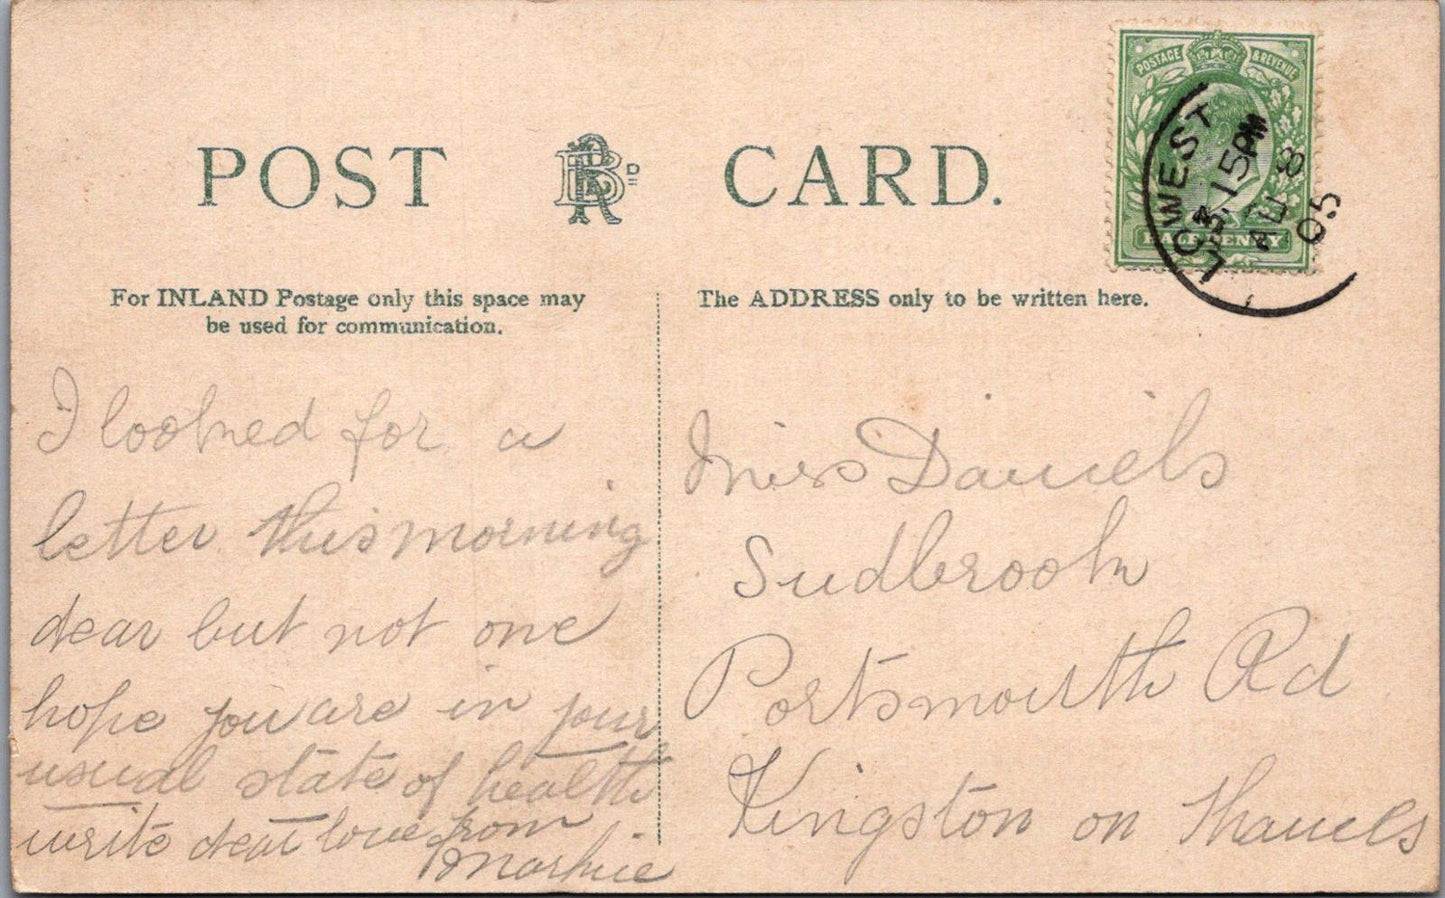 POSTAGE & REVENUE
HALFPENNY
LOWEST
3.15PM
AU 8
05
POST CARD.
For INLAND Postage only this space may
be used for communication.
The ADDRESS only to be written here.
I looked for a
letter this morning
dear but not one
hope you are in your
usual state of health
write dear love from
Miss Daniels
Sudbrook
Portsmouth Rd
Kingston on Thames